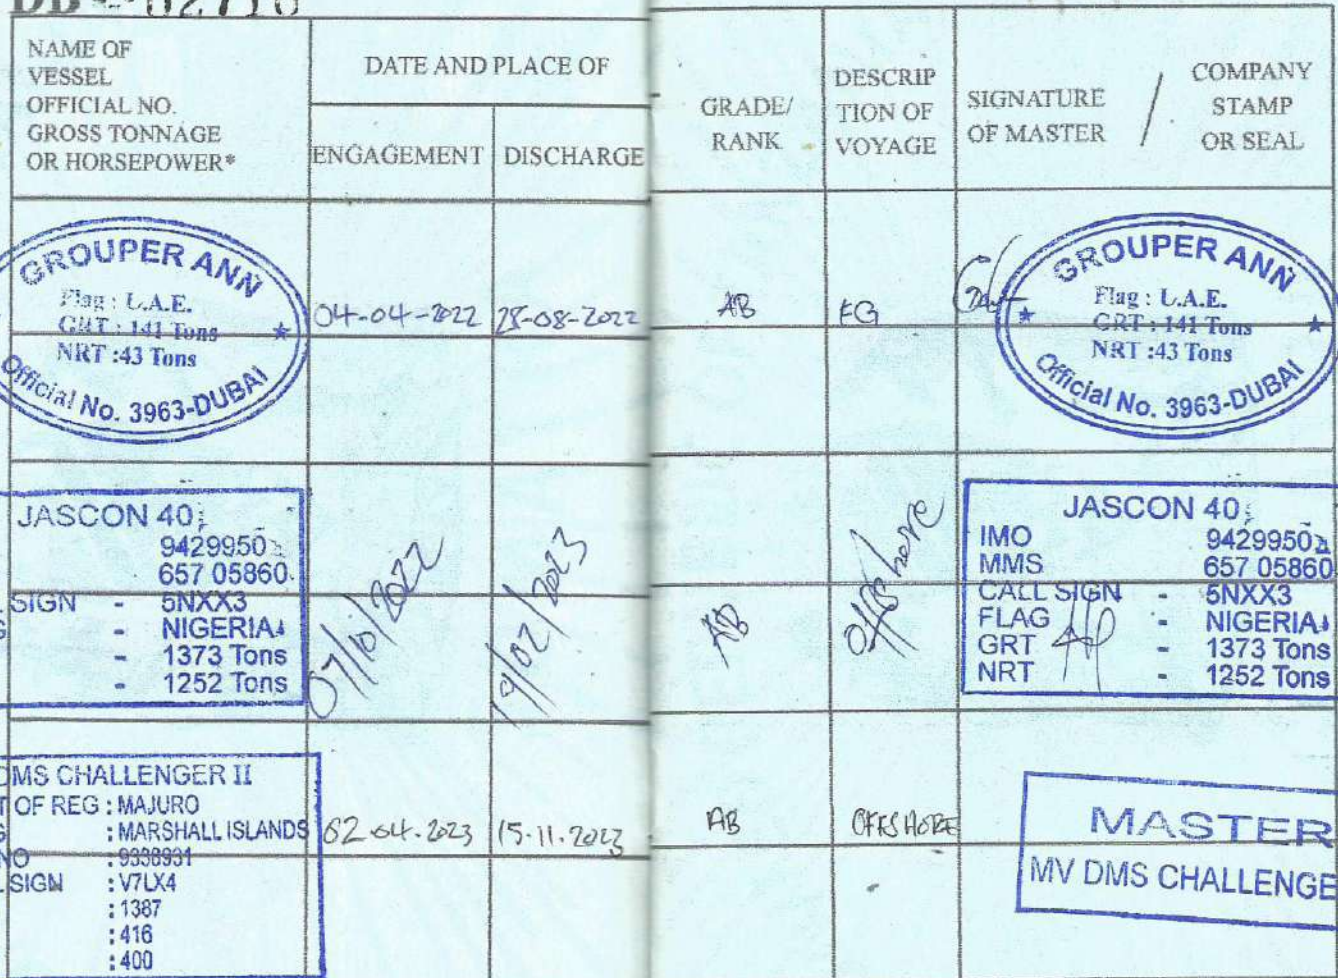 NAME OF
VESSEL
OFFICIAL NO.
GROSS TONNAGE
OR HORSEPOWER*
DATE AND PLACE OF
ENGAGEMENT
DISCHARGE
GRADE/
RANK
DESCRIP
TION OF
VOYAGE
SIGNATURE
OF MASTER
/
COMPANY
STAMP
OR SEAL
GROUPER ANN
Flag : U.A.E.
GRT : 141 Tons
NRT :43 Tons
Official No. 3963-DUBAI
04-04-2022
28-08-2022
AB
FG
GROUPER ANN
Flag : U.A.E.
GRT : 141 Tons
NRT :43 Tons
Official No. 3963-DUBAI
JASCON 40
9429950
657 05860
SIGN - 5NXX3
- NIGERIA
- 1373 Tons
- 1252 Tons
07/10/2022
19/02/2023
AB
Offshore
JASCON 40
IMO 9429950
MMS 657 05860
CALL SIGN - 5NXX3
FLAG - NIGERIA
GRT - 1373 Tons
NRT - 1252 Tons
DMS CHALLENGER II
T OF REG : MAJURO
: MARSHALL ISLANDS
NO : 9338931
SIGN : V7LX4
: 1387
: 416
: 400
02.04.2023
15.11.2023
AB
OFFSHORE
MASTER
MV DMS CHALLENGE